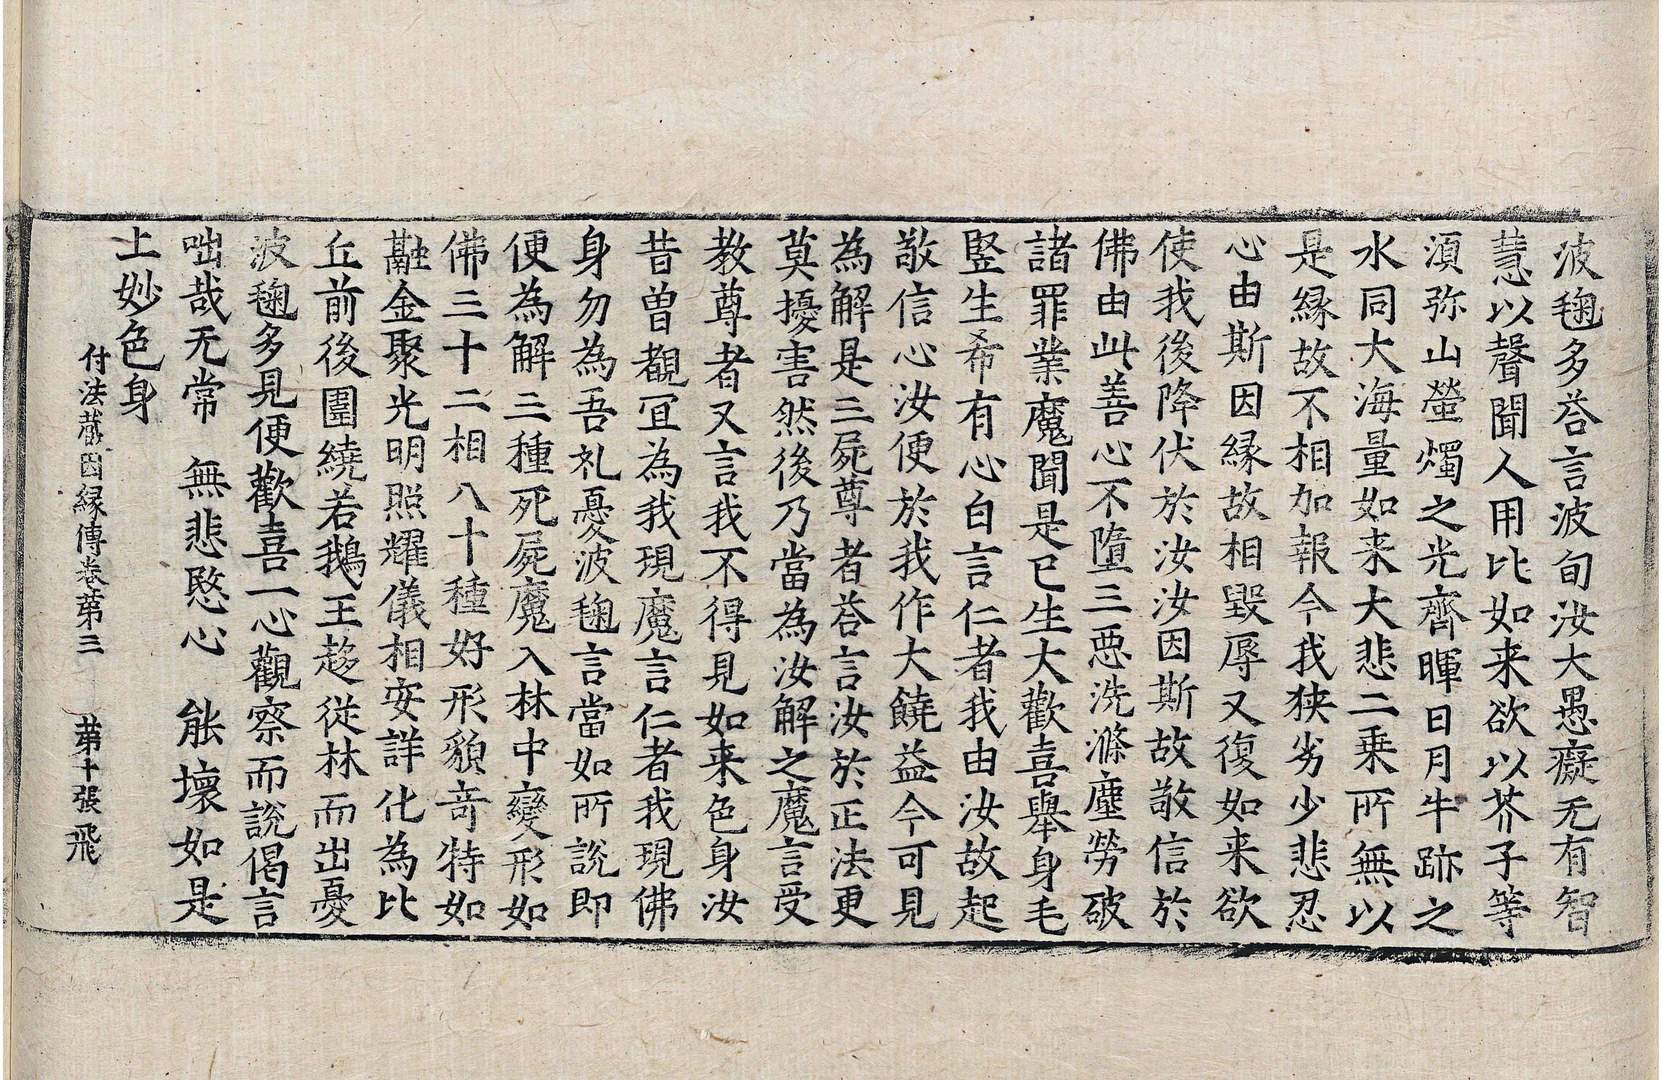 波毱多荅言波旬汝大愚癡无有智
慧以聲聞人用比如来欲以芥子等
湏弥山螢燭之光齊暉日月牛跡之
水同大海量如来大悲二乗所無以
是縁故不相加報今我狭劣少悲忍
心由斯因縁故相毀辱又復如来欲
使我後降伏於汝汝因斯故敬信於
佛由此善心不墮三惡洗滌塵勞破
諸罪業魔聞是已生大歡喜舉身毛
竪生希有心白言仁者我由汝故起
敬信心汝便於我作大饒益今可見
為解是三屍尊者荅言汝於正法更
莫擾害然後乃當為汝解之魔言受
教尊者又言我不得見如来色身汝
昔曾覩冝為我現魔言仁者我現佛
身勿為吾礼憂波毱言當如所說即
便為解三種死屍魔入林中變形如
佛三十二相八十種好形貌竒特如
融金聚光明照耀儀相安詳化為比
丘前後圍繞若鵝王趍従林而出憂
波毱多見便歡喜一心觀察而說偈言
咄哉无常　無悲愍心　能壞如是
上妙色身
付法藏因縁傳卷第三　第十張　飛